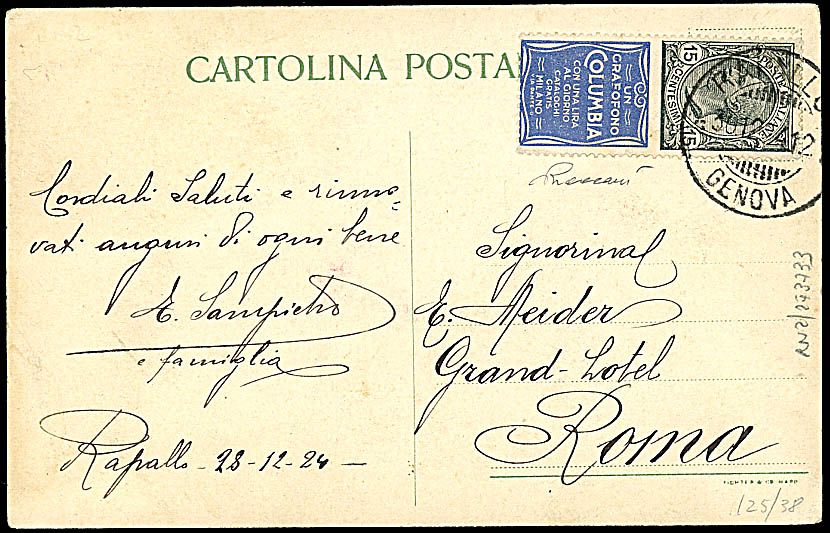 CARTOLINA POSTA
UN
GRAFOFONO
COLUMBIA
CON UNA LIRA
AL GIORNO
CATALOGHI
GRATIS
MILANO
POSTE ITALIANE
15 CENTESIMI 15
GENOVA
12
Cordiali Saluti e rinno-
vati auguri di ogni bene
E. Sampietro
e famiglia
Rapallo - 28-12-24 -
Signorina
E. Meider
Grand-Hotel
Roma
RN2/293433
125/38